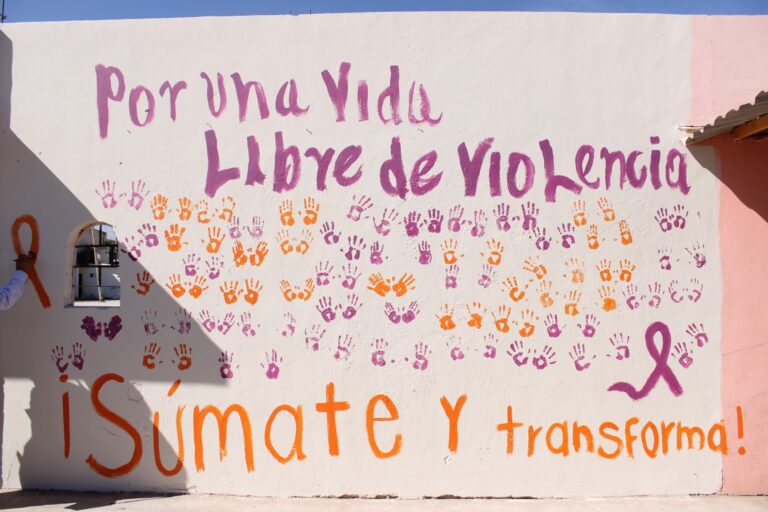 Por una vida
Libre de violencia
¡Súmate y transforma!